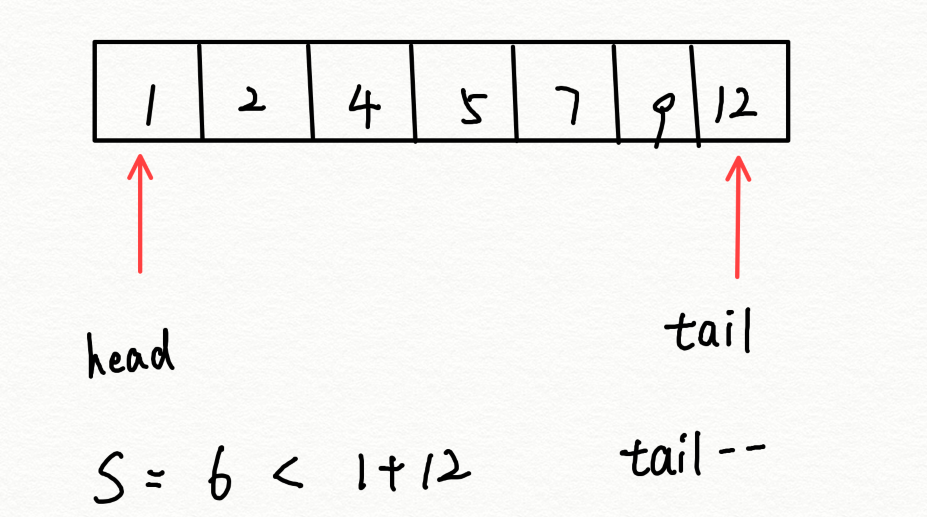 1 2 4 5 7 9 12
head tail
S = 6 < 1+12 tail--